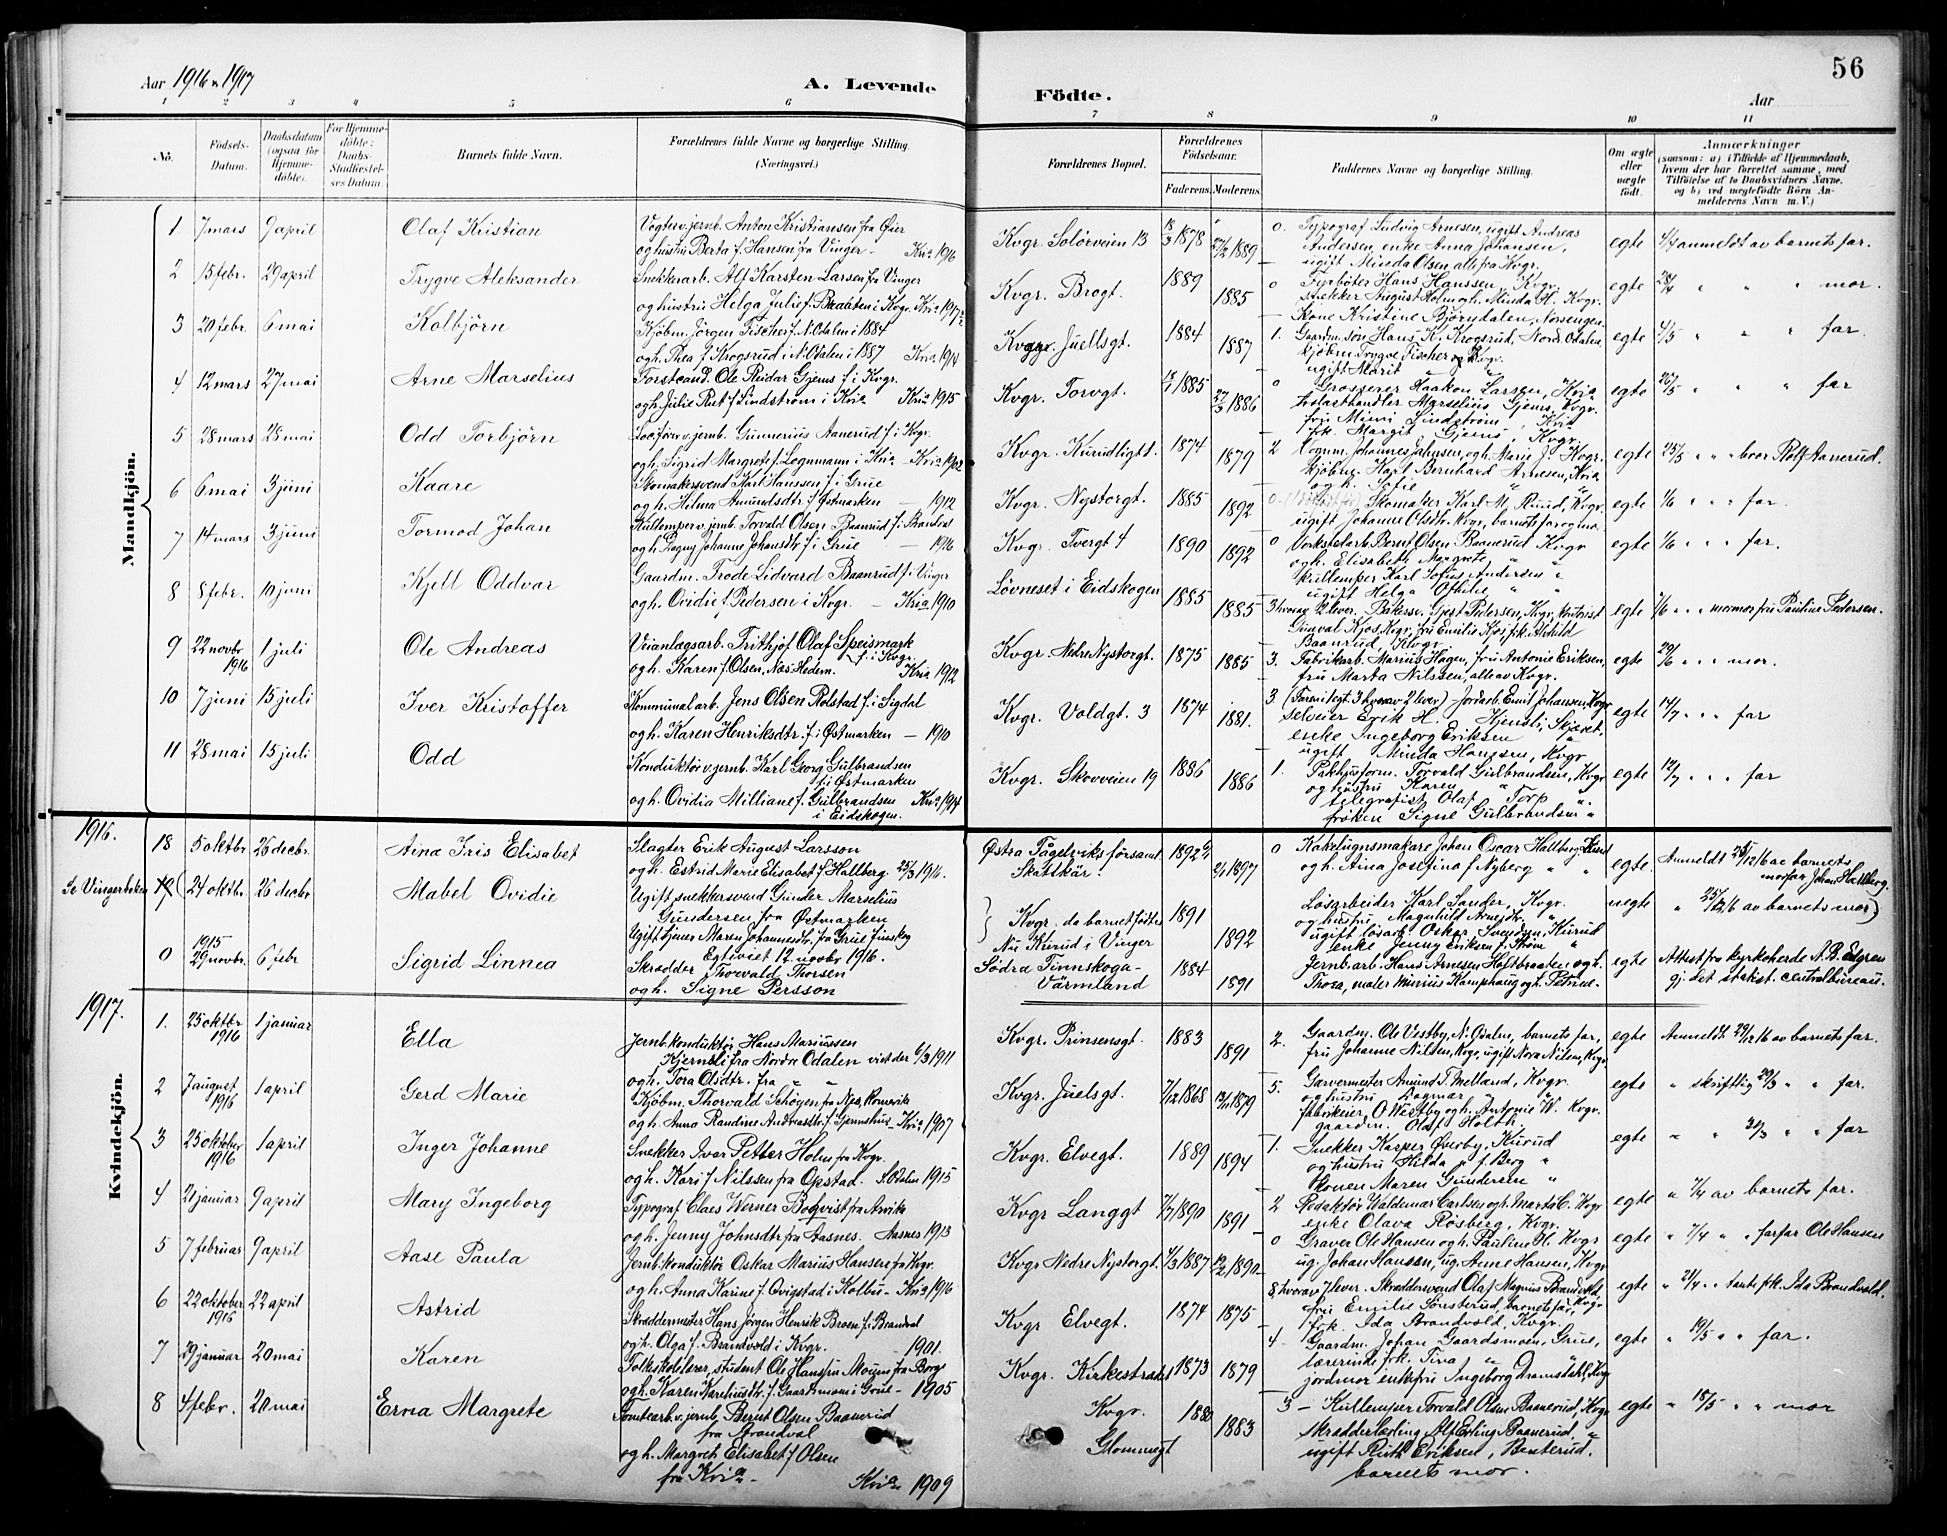 Aar 1916 & 1917
A. Levende
Födte.
Aar
56
1 2 3 4 5 6 7 8 9 10 11
No.
Födsels-Datum.
Daabsdatum (ogsaa for Hjemmedöbte).
For Hjemmedöbte: Daabs-Stadfæstelses Datum.
Barnets fulde Navn.
Forældrenes fulde Navne og borgerlige Stilling. (Næringsvei.)
Forældrenes Bopæl.
Forældrenes Födselsaar.
Faderens. Moderens.
Faddernes Navne og borgerlige Stilling.
Om ægte eller uægte födt.
Anmærkninger (saasom: a) i Tilfælde af Hjemmedaab, hvem der har forrettet samme, med Tilföielse af to Daabsvidners Navne, og b) ved uægtefödte Börn Anmelderens Navn m. V.)
Mandkjön.
1 7 mars 9 april Olaf Kristian
Vogterv. jernb. Anton Kristiansen fra Øier
og hustru Berta f. Hansen fra Vinger - Kria 1916
Kvgr. Solörveien 13 1878 1889
0. Typograf Ludvig Arnesen, ugift Andreas
Andersen, enke Anna Johansen,
ugift Minda Olsen, alle fra Kvgr.
egte anmeldt av barnets far.
2 15 febr. 29 april Trygve Aleksander
Snekkerarb. Alf Karsten Larsen fra Vinger
og hustru Helga Julie f. Braaten i Kvgr. Kria
Kvgr. Brogt. 1889 1885
0 Fyrböter Hans Hanssen, Kvgr.
snekker August Holm og h. Minda H. Kvgr.
Kone Kristine Björndalen, Norsengen
egte 28/4 " " " mor.
3 20 febr. 6 mai Kolbjörn
Kjöbm. Jörgen Fischer f. N. Odalen i 1884
og h. Thea f. Krogsrud i N. Odalen i 1887 Kria 1914
Kvgr. Juellsgt. 1884 1887
1. Gaardm. sön Hans K. Krogsrud, Nord. Odalen
kjöbm. Trygve Fischer, Kvgr.
ugift Marit
egte 4/5 " " " far.
4 12 mars 27 mai Arne Marselius
Forstcand. Ole Reidar Gjems f. i Kvgr.
og h. Julie Rut f. Lindström i Kria Kria 1915
Kvgr. Torvgt. 1885 1886
0 Grosserer Haakon Larsen, Kria
trelasthandler Marselius Gjems, Kvgr.
fru Mimi Lindström, Kria
frk. Margit Gjems, Kvgr.
egte " " " far
5 28 mars 28 mai Odd Torbjörn
Locförer v. jernb. Gunnerius Aanerud f. i Kvgr.
og h. Sigrid Margrete f. Legnmann i Kria - Kria 1902
Kvgr. Kurudligt. 1874 1879
2 Vognm. Johannes Johnsen, og h. Marie J. Kvgr.
kjöbm. Karl Bernhard Arnesen, Kria
og h. Sofie "
egte 25/5 " " bror Rolf Aanerud.
6 6 mai 3 juni Kaare
Skomakersvend Karl Hanssen f. i Grue
og h. Hilma Amundsdtr. f. Østmarken - 1912
Kvgr. Nystorgt. 1885 1892
0 Skomaker Karl M. Ruud, Kvgr.
ugift Johanne Olsdtr. Kvgr, barnets far og mor
egte 1/6 " " " far.
7 14 mars 3 juni Tormod Johan
Kullemper v. jernb. Torvald Olsen Baanrud f. i Brandval
og h. Ragny Johanne Johansdtr. f. i Grue - 1916
Kvgr. Tvergt 4 1890 1892
0 Verkstedarb. Bernt Olsen Baanerud Kvgr
og h. Elisabeth Margrete "
kullemper Karl Sofus Andersen "
ugift Helga Othilie " "
egte 1/6 " " " far.
8 8 febr. 10 juni Kjell Oddvar
Gaardm. Frode Lidvard Baanrud f. i Vinger
og h. Ovidie f. Pedersen i Kvgr. - Kria 1910
Løvneset i Eidskogen 1885 1885
3 hvorav 2 lever. Bakersv. Gjert Pedersen, Kvgr, kontorist
Gunval Kjos, Kvgr, fru Emilie Kjos, frk. Arnhild
Baanrud, Kvgr
egte " " " mormor fru Pauline Pedersen.
9 22 novbr 1916 1 juli Ole Andreas
Veianlægsarb. Frithjof Olaf Speismark
f. i Kvgr.
og h. Karen f. Olsen, Nes Hedem. Kria 1912
Kvgr. Nedre Nystorgt. 1875 1885
3. Fabrikarb. Marius Hagen, fru Antonie Eriksen,
fru Marta Nilssen, alle av Kvgr.
egte 29/6 " " " mor.
10 7 juni 15 juli Iver Kristoffer
Kommunalarb. Jens Olsen Rolstad f. i Sigdal
og h. Karen Henriksdtr. f. i Østmarken - 1910
Kvgr. Voldgt. 3 1874 1881.
3 (Faren i egt. 3 hvorav 2 lever) Jordarb. Emil Johansen, Kvgr
selveier Erik H. Kjensli, Skjæret,
enke Ingeborg Eriksen "
ugift Minda Hanssen, Kvgr.
egte 14/7 " " " far
11 28 mai 15 juli Odd
Konduktör v. jernb. Karl Georg Gulbrandsen
f. i Østmarken
og h. Ovidia Milliane f. Gulbrandsen Kria 1914
i Eidskogen.
Kvgr. Skovveien 19 1886 1886
1. Pakhusform. Torvald Gulbrandsen, Kvgr
og hustru Karen "
telegrafist Olaf Torp "
fröken Signe Gulbrandsen "
egte 12/7 " " " far
1916.
18 5 oktbr 26 decbr Aina Iris Elisabet
Slagter Erik August Larsson
og h. Estrid Marie Elisabet f. Hallberg. 25/3 1914.
Östra Fågelviks församl.
Skattkärr. 1892 1897
0 Kakelugnsmakare Johan Oscar Hallberg
og h. Aina Josefina f. Nyberg " "
egte. Anmeldt 28/12 16 av barnets
morfar Johan Hallberg.
Se Vingerboken
19 24 oktbr. 26 decbr Mabel Ovidie
Ugift snekkersvend Gunder Marselius
Gundersen fra Østmarken
Ugift tjener Maren Johannesdtr. fra Grue Finskog
Egteviet 12 novbr 1916.
Kvgr. da barnet fødtes
Nu Kurud i Vinger 1891 1892
Løsarbeider Karl Sander, Kvgr.
og hustru Magnhild Arnesdtr. "
ugift løsarb. Oskar Svendsen, Kurud
enke Jenny Eriksen f. Thom "
uegte " 25/12 16 av barnets mor)
0 1915 29 novbr. 6 febr Sigrid Linnea
Skrædder Thorvald Thorsen
og h. Signe Persson
Södra Finnskoga-
Värmland 1884 1891
Jernb. arb. Hans Arnesen Holtbraaten og h.
Thora, maler Minius Kamphaug og h. Petrine.
egte Attest fra kyrkoherde A. B. Edgren
gj. det statist. centralbureau.
1917.
Kvindekjön.
1. 25 oktbr 1916 1 januar Ella
Jernb. konduktør Hans Mariussen
Kjernsli fra Nordre Odalen viet der 6/3 1911
og h. Tora Olsdtr. fra " "
Kvgr. Prinsensgt. 1883 1891
2. Gaardm. Ole Vestby, N. Odalen, barnets far,
fru Johanne Nilsen, Kvgr, ugift Nora Nilsen, Kvgr
egte Anmeldt 29/12 16 av barnets far.
2 7 august 1916 1 april Gerd Marie
Kjøbm. Thorvald Schøyen fra Nes, Romerike
og h. Anna Randine Andreasdtr. f. Gjemshus - Kria 1907
Kvgr. Juelsgt. 7/12 1868 1879
5. Garvermester Amund T. Melland, Kvgr.
og hustru Dagmar "
fabrikeier O. Westby og h. Antonie W. Kvgr.
gaardm. Olaf Holth.
egte " skriftlig 29/3 " " far.
3 25 oktober 1916 1 april Inger Johanne
Snekker Ivar Petter Holen fra Kvgr.
og h. Kari f. Nilssen fra Opstad. S. Odalen 1915
Kvgr. Elvegt. 1889 1894
1. Snekker Kasper Øverby, Kurud
og hustru Hilda " f. Berg "
konen Maren Gundersen "
egte " " 30/3 " " far
4 21 januar 9 april Mary Ingeborg
Typograf Claes Werner Boqvist fra Arvika
og h. Jenny Johnsdtr fra Aasnes. Aasnes 1913
Kvgr Langgt 1890 1891
2 Redaktör Waldemar Carlsen og h. Marta C. Kvgr
enke Olava Rosberg, Kvgr.
egte " 7/4 av barnets far.
5 7 februar 9 april Aase Paula
Jernb. konduktör Oskar Marius Hansen fra Kvgr.
og h. Anna Karine f. Qvigstad i Kolbu - Kria 1916
Kvgr Nedre Nystorgt. 1887 1890
0 Graver Ole Hansen og h. Pauline H. Kvgr
ug. Johan Hansen, ug. Arne Hansen, Kvgr
egte " 7/4 " " farfar Ole Hansen
6 22 oktober 1916 22 april Astrid
Skræddermester Hans Jörgen Henrik Broen f. i Brandval
og h. Olga f. Brandvold i Kvgr. - 1901.
Kvgr Elvegt. 1874 1875
8 hvorav 7 lever. Skræddersvend Olaf Magnus Brandvold,
fru Emilie Sønsterud, barnets far, Kvgr
frk. Ida Brandvold, Kvgr.
egte " 21/4 " " tante frk. Ida Brandvold.
7 29 januar 20 mai Karen
Folkskolelærer, student Ole Hanssen Moum fra Borge
og h. Karen Kareliusdtr. f. Gaardsmoen i Grue - 1905
Kvgr. Kirkestrædet 1873 1879
4 - Gaardm. Johan Gaardsmoen, Grue,
lærerinde frk. Tiva " "
jordmor enkefru Ingeborg Dramsdahl, Kvgr
egte " 19/5 " " far.
8 4 febr. 20 mai Erna Margrete
Tomtearb. v. jernb. Bernt Olsen Baanerud
fra Brandval
og h. Margreth Elisabet f. Olsen
fra Kria - Kria 1909
Kvgr.
Glommegt 1883
3 - Kullemper Torvald Olsen Baanerud, Kvgr
skrædderlærling Alf Erling Baanerud, "
ugift Ruth Eriksen, Benterud.
barnets mor.
egte " 18/5 " " mor